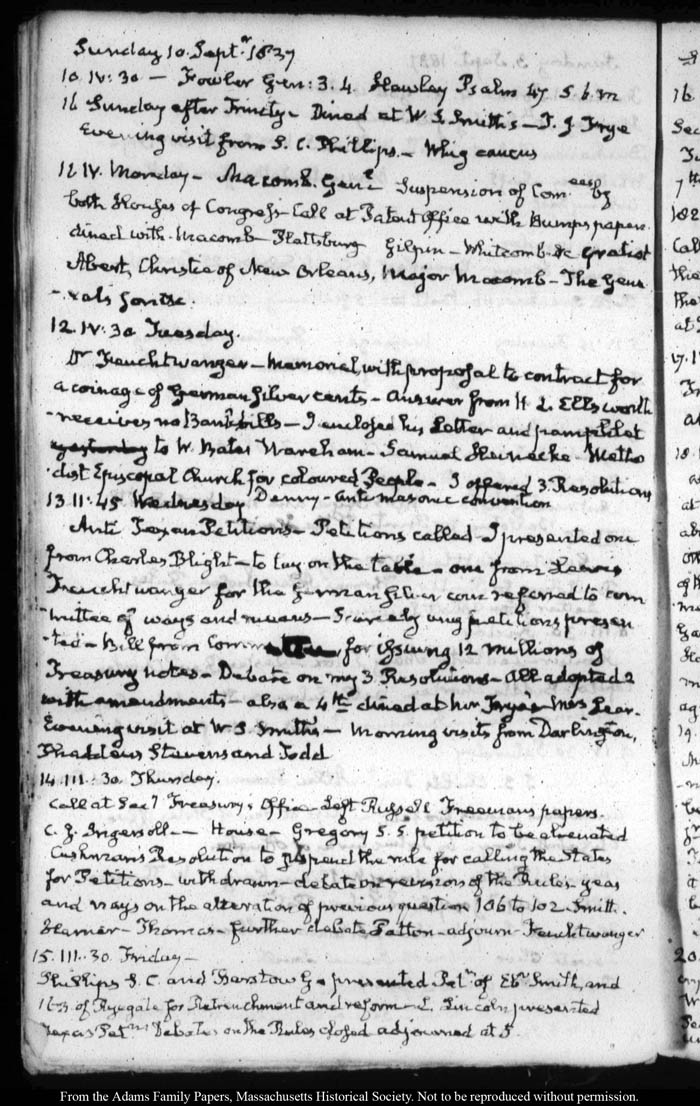 Sunday 10. Septr. 1837
10. IV: 30 — Fowler Gen: 3. 4. Hawley Psalm 47. 5. 6. m
16 Sunday after Trinity — Dined at W. S. Smith's — I. J. Frye
Evening visit from S. C. Phillips. — Whig caucus
12. IV. Monday — Macomb. Genl. Suspension of Com by
both Houses of Congress — Call at Patent Office with Bumps papers.
dined with Macomb — Plattsburg Gilpin — Whitcomb &c Gratiot
Abert, Christie of New Orleans, Major Macomb — The Gene
-rals
12. IV: 30 Tuesday.
Dr Feuchtwanger — Memorial, with proposal to contract for
a coinage of German Silver cents — Answer from H. L. Ellsworth
receives no Bank bills — I enclosed his Letter and pamphlet
yesterday to W. Bates Wareham — Samuel Heinecke Metho
-dist Episcopal Church for coloured People — I offered 3. Resolutions
13. II: 45. Wednesday Denny — Antimasonic convention
Anti Texan Petitions — Petitions called — I presented one
from Charles Blight — to lay on the table — one from Lewis
Feuchtwanger for the German Silver coin referred to com
-mittee of ways and means — Scarcely any petitions presen
-ted — Bill from Comm for issuing 12 millions of
Treasury notes — Debate on my 3 Resolutions — All adopted 2
with amendments — also a 4th dined at Mr Frye's Mrs Lear.
Evening visit at W. S. Smith's — Morning visits from Darlington,
Thaddeus Stevens and Todd
14. III: 30. Thursday.
Call at Secy Treasury's Office — Left Russell Freeman's papers.
C. J. Ingersoll — House — Gregory S. S. petition to be
Cushman's Resolution to suspend the rule for calling the States
for Petitions — withdrawn — debate on revision of the Rules yeas
and nays on the alteration of previous question 106 to 102 Smith.
Hamer — Thomas — further debate, Patton — adjourn — Feuchtwanger
15. III: 30. Friday —
Phillips S. C. and Barstow G — presented Petn. of Ebr. Smith, and
163 of Ryegate for Retrenchment and reform — L. Lincoln presented
Texas Petns Debates on the Rules closed adjourned at 5.
From the Adams Family Papers, Massachusetts Historical Society. Not to be reproduced without permission.